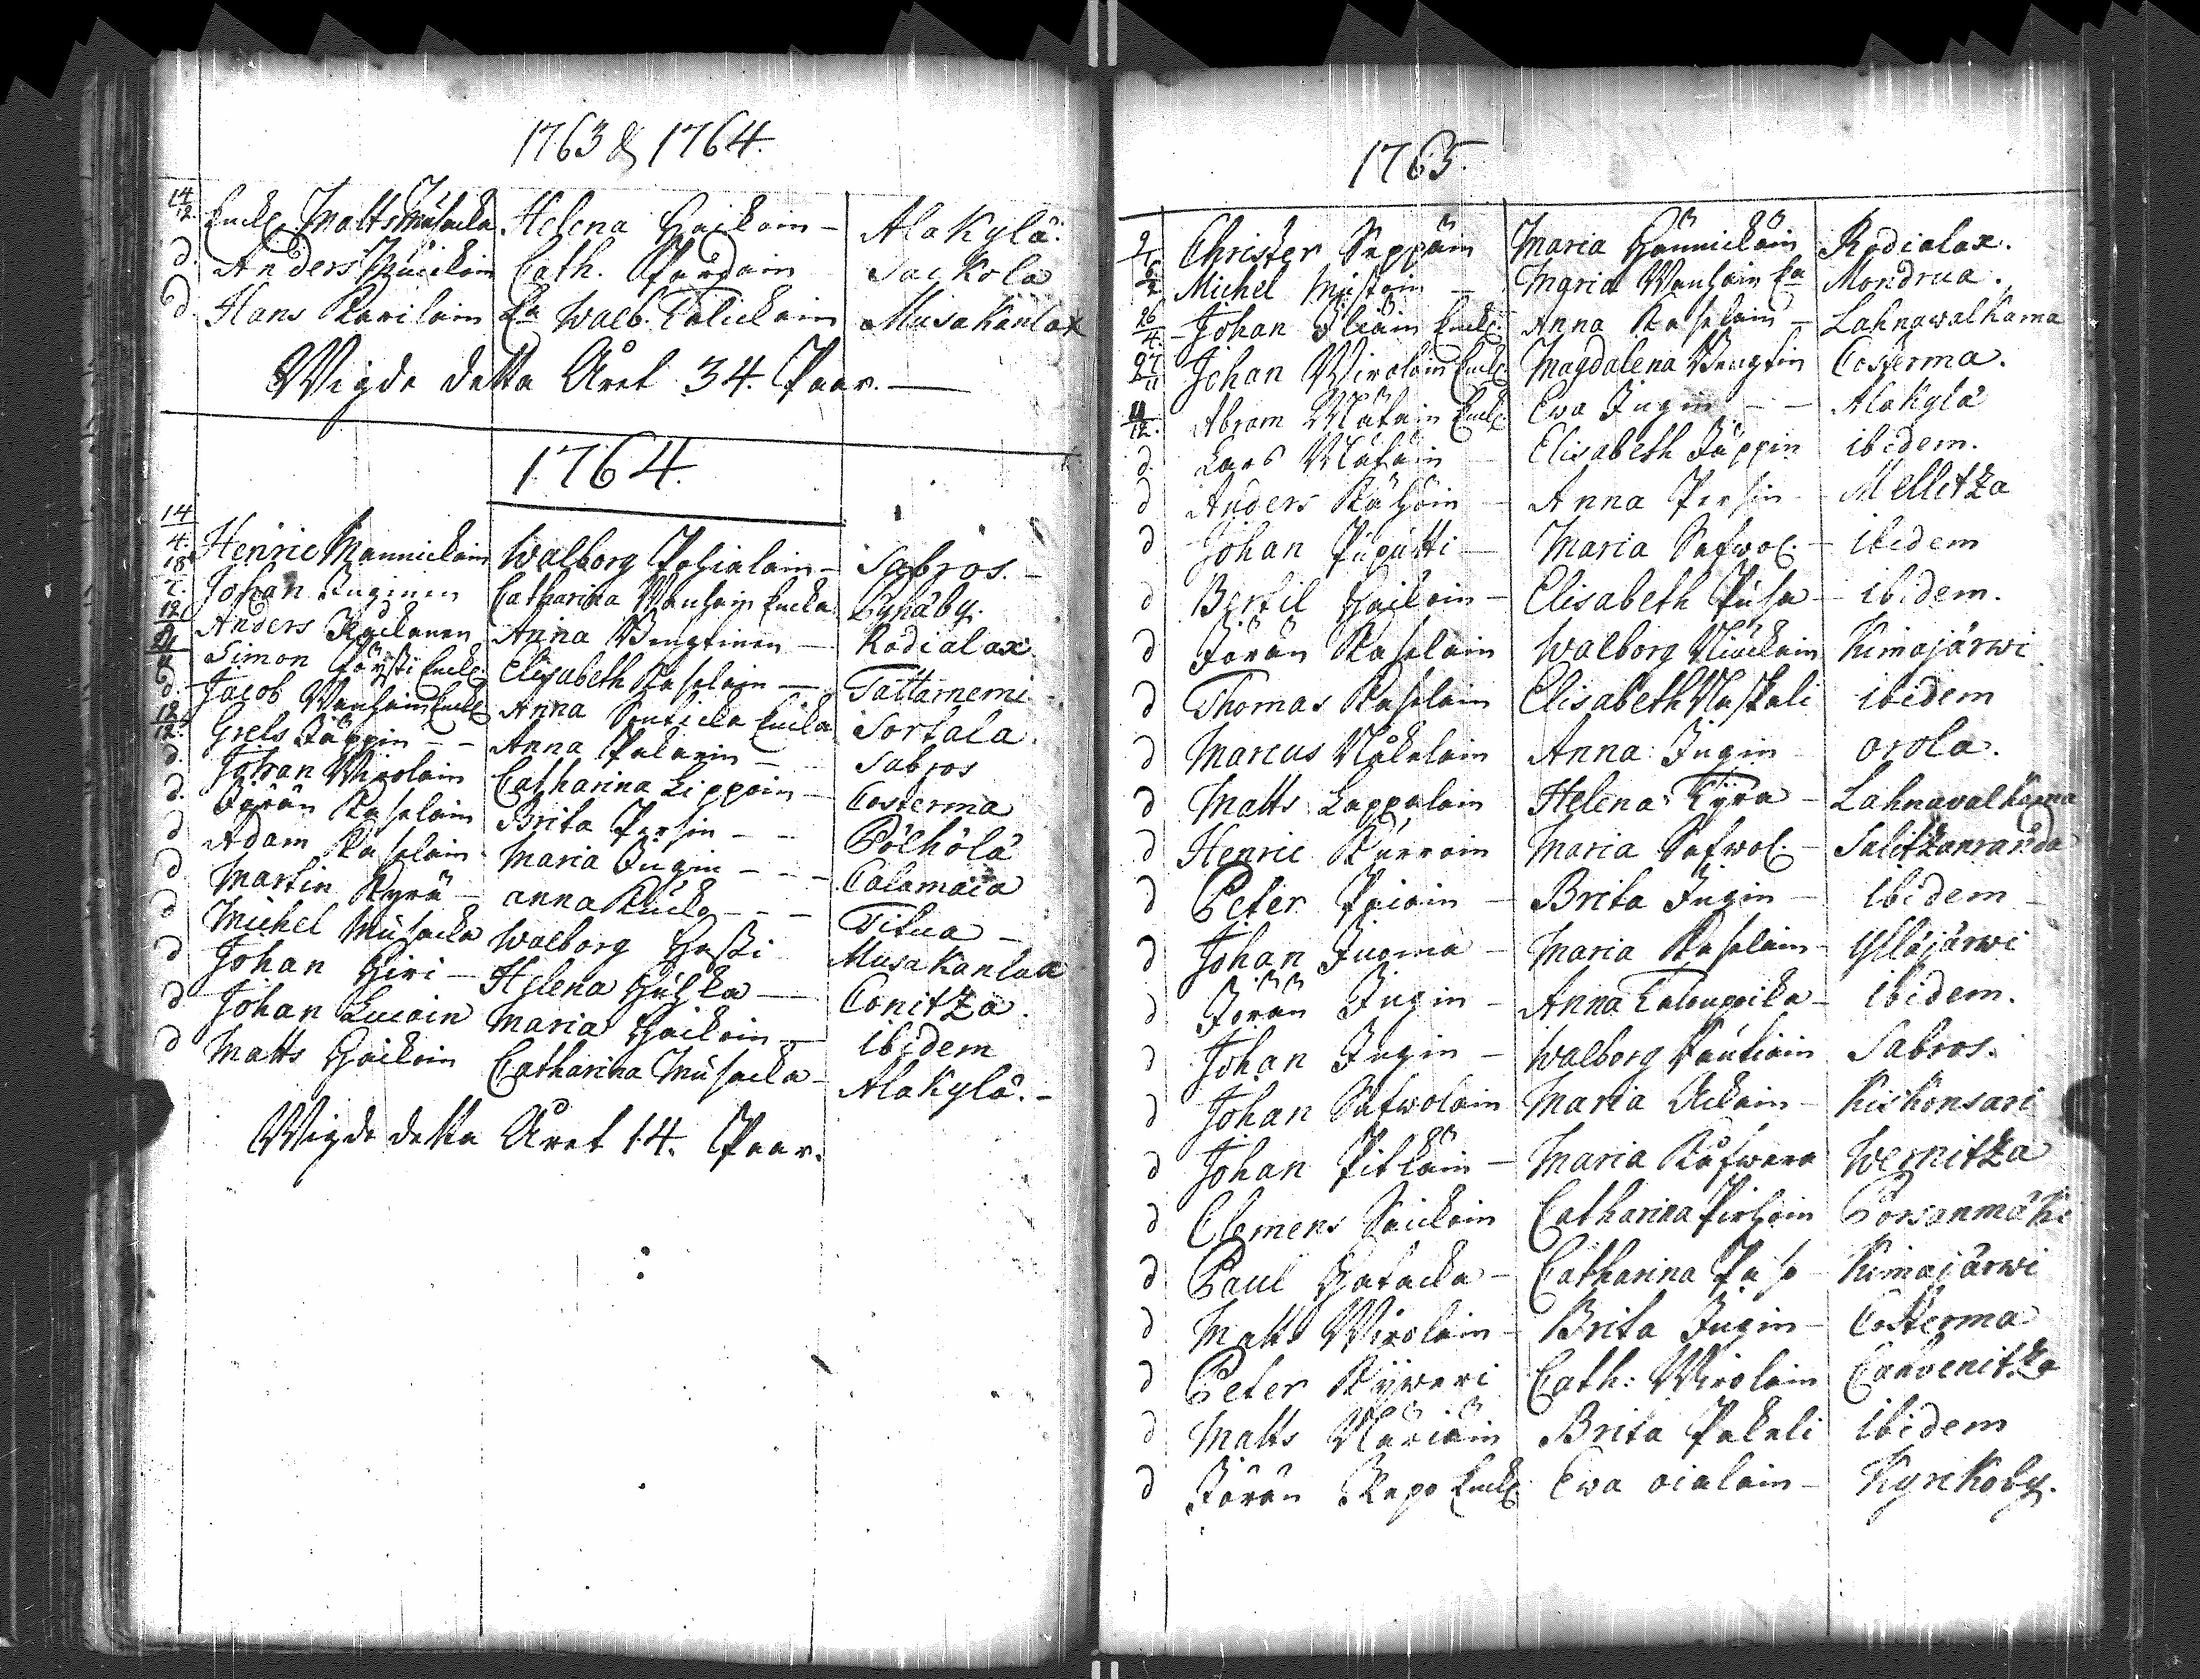 1763 & 1764.
14/12. Enckl. Matts Musacka Helena Haikain - Alakylä.
d. Anders Cath. Saickola
d Hans Karilain Ea Walb. Talickain Musakanlax
Wigde detta Året 34. Paar. —
1764.
14/4. Henric Mannickain Walborg Pohjalain - Sabros. -
18/ Johan Inginen Catharina Wanhain Encka Kyrkåby.
12/ Anders Kackonen Anna Bengtinen - Rodialax.
Simon Enckl Elisabeth Kasolain - Tattarnemi
d. Jacob Wanhain Enckl Anna Encka Sortala.
12/12. Grels Jäppin - - Anna Pakarin - Sabros
d. Johan Wirolain Catharina Lippoin - Costerma
d. Jörän Kasolain Brita Persin - - Pölhölä
d Adam Kasolain Maria Ingin - - - Calamaia
d Martin Kyrö - anna Kucko - - - Titua -
d Michel Musacka Walborg Musakanlax
d Johan Hiri - Helena - Conitza.
d Johan Lucoin Maria Haickoin - ibidem
d Matts Haickoin Catharina Musacka - Alakylä. -
Wigde detta Året 14. Paar.
1765.
2/ Christer Seppäin Maria Hännickäin Rodialax.
6/2 Michel Mustoin - Maria Wanhain Ea Mondrua.
26/4. Johan Enckl. Anna Kasolain - Lahnawalkama
27/11 Johan Wirolain Enckl Magdalena Bengtin Costerma.
11/12. Abram Näkäin Enckl Ewa Ingin - - Alakylä
d. Lars Näkäin - Elisabeth Jäppin ibidem.
d Anders Kähöin - Anna Persin - Mellitza
d Johan Puputti - Maria Safwol. - ibidem
d Bertil Haikoin - Elisabeth Pusa - ibidem.
d Jörän Kasolain Walborg Kimajärwi
d Thomas Kasolain Elisabeth Naskali ibidem
d Marcus Nokelain Anna Ingin orola.
d Matts Lappalain Helena Tyra - Lahnavalkama
d Henric Kurroin Maria Safwol. - Salitzanranda
d Peter Paioin - Brita Ingin - ibidem -
d Johan Juoma - Maria Kasolain - Ylläjärwi
d Jörän Ingin - Anna Taloupoika - ibidem.
d Johan Ingin - Walborg Rautiain Sabros.
d Johan Safwolain Maria Ackain - Kiskonsari
d Johan Pitkäin - Maria Kåfwara Wernitza
d Clemens Saickoin Catharina Pirhoin Porsanmäki
d Paul Hatacka - Catharina Pusa - Kimajärwi
d Matts Wirolain - Brita Ingin - Costerma
d Peter Kyweri Cath: Wirolain Convenitza
d Matts Näriäin Brita Pakali ibidem
d Jörän Repo Enckl Ewa oialain - Kyrkoby.